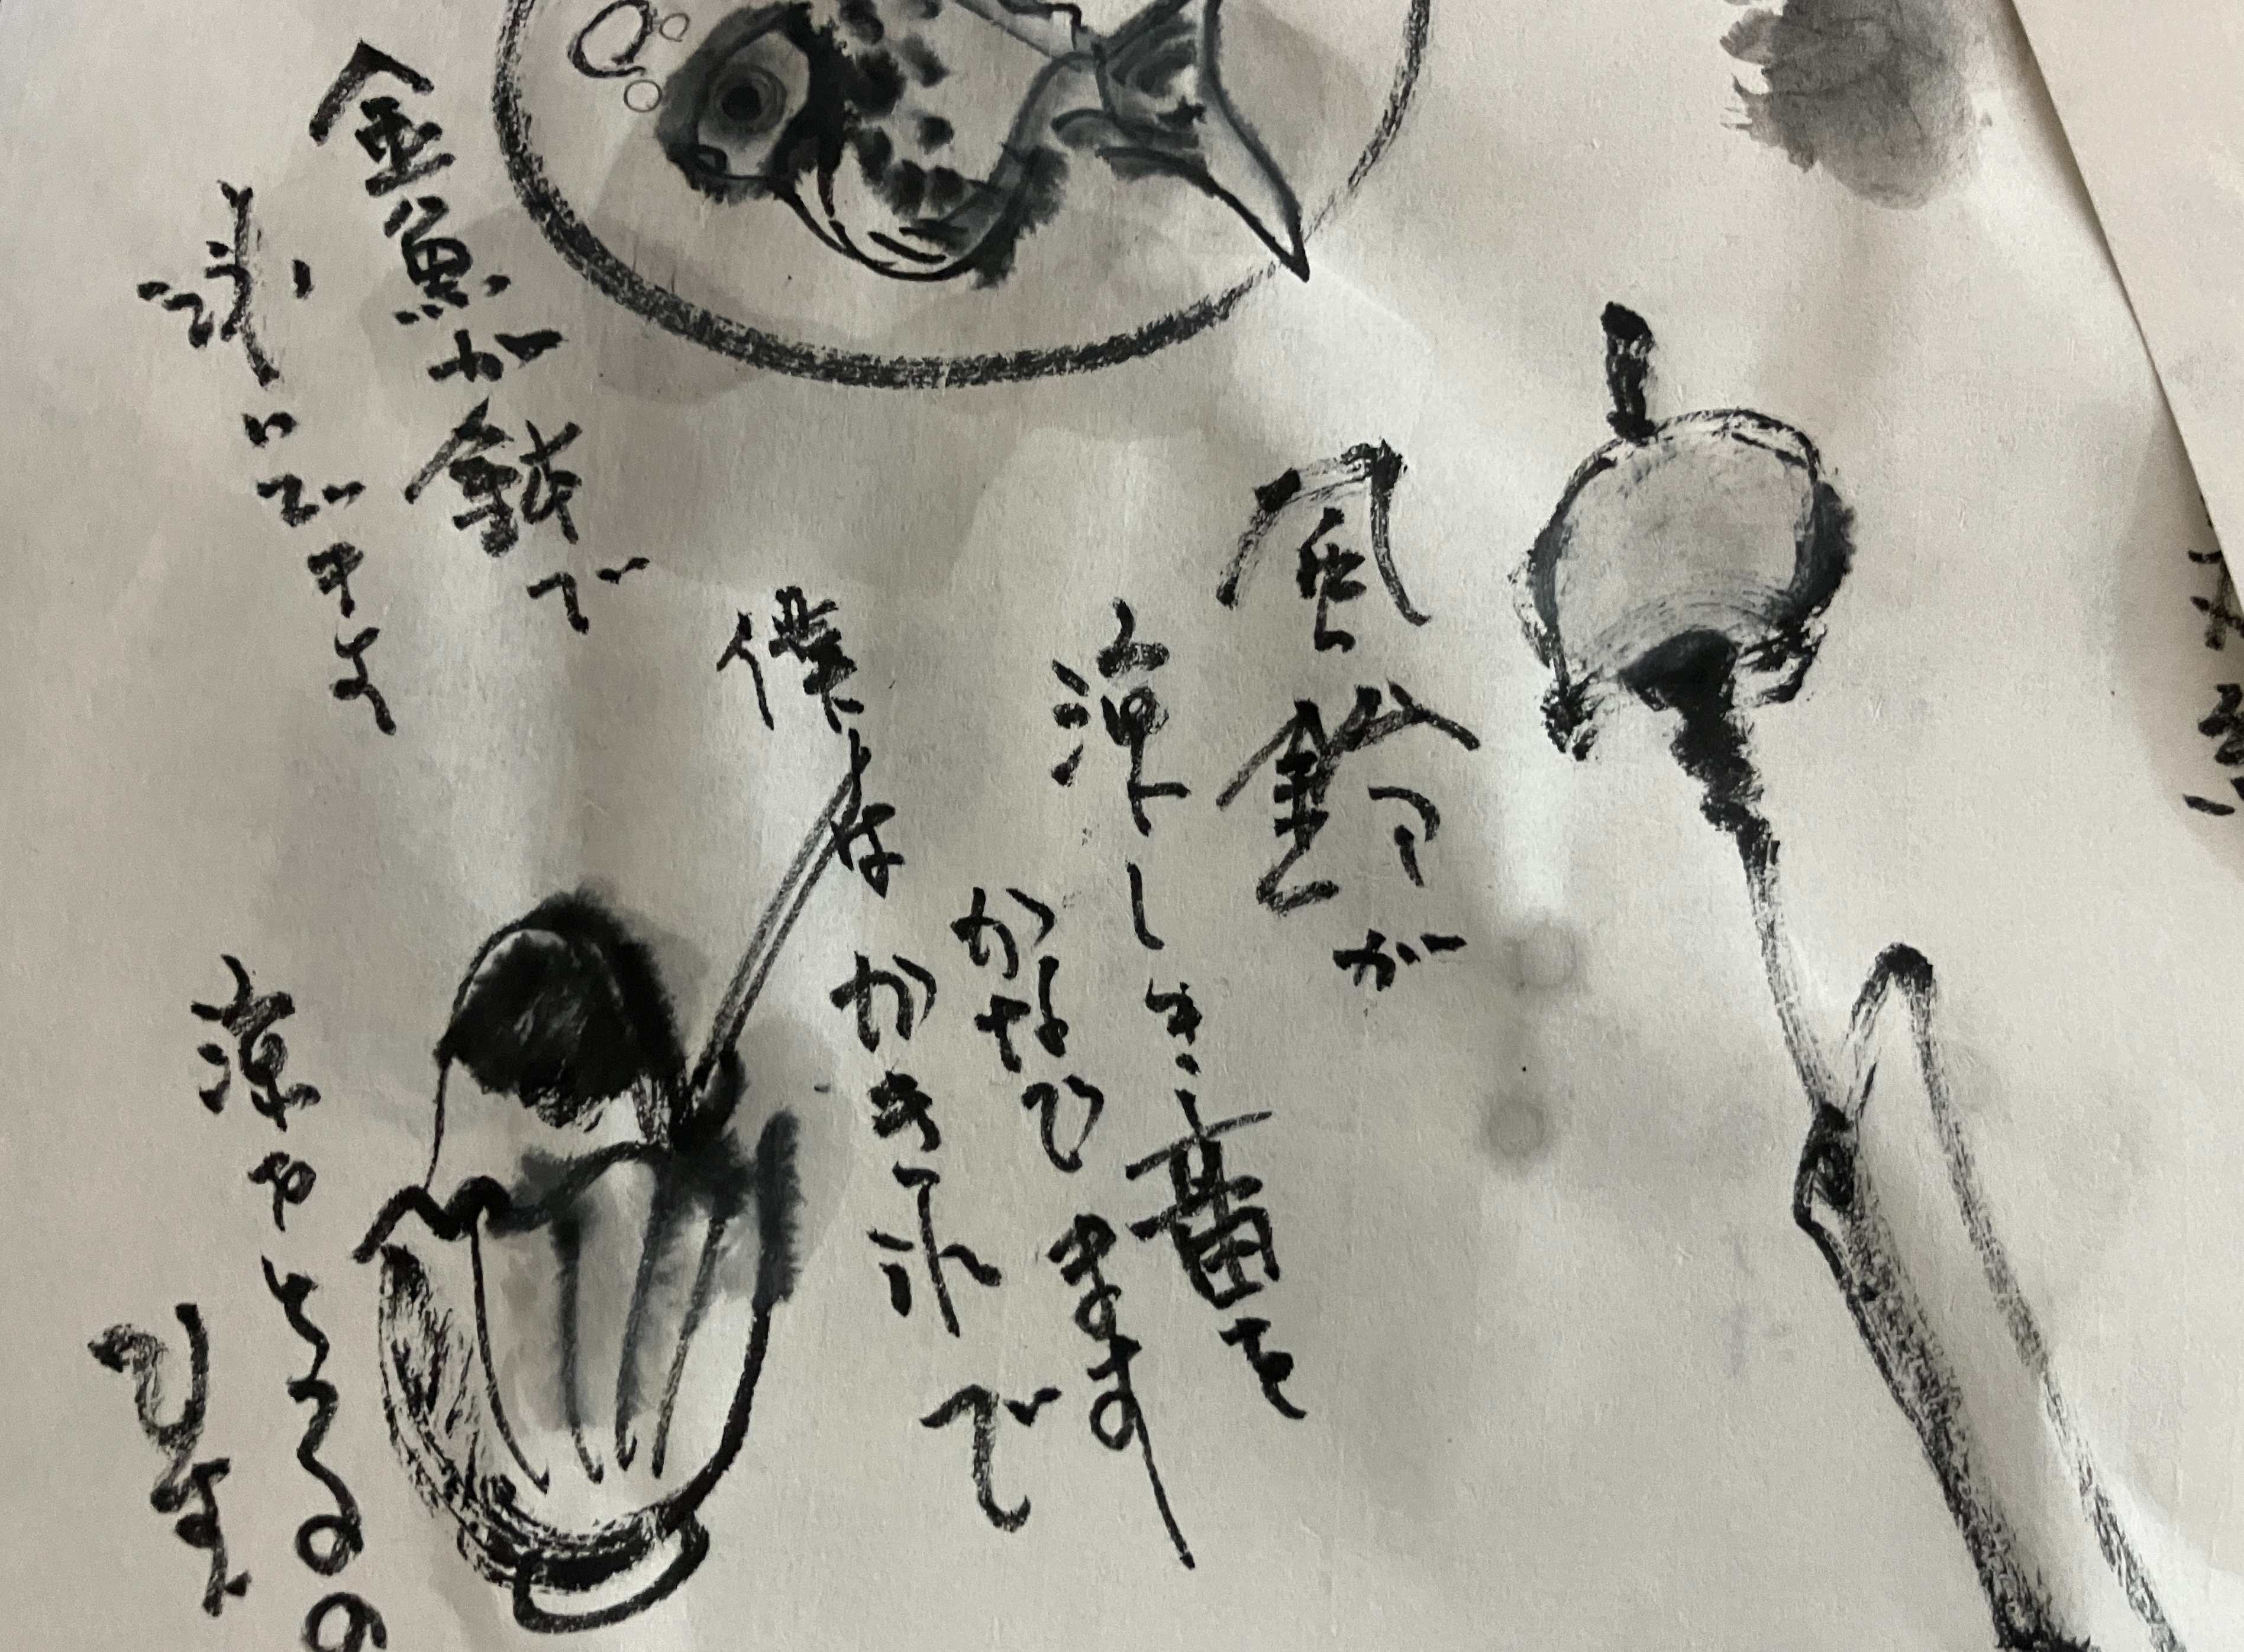 風鈴が
涼しき音を
かなひます
僕はかき氷で
涼やとるの
金魚が鉢で
泳いで よ